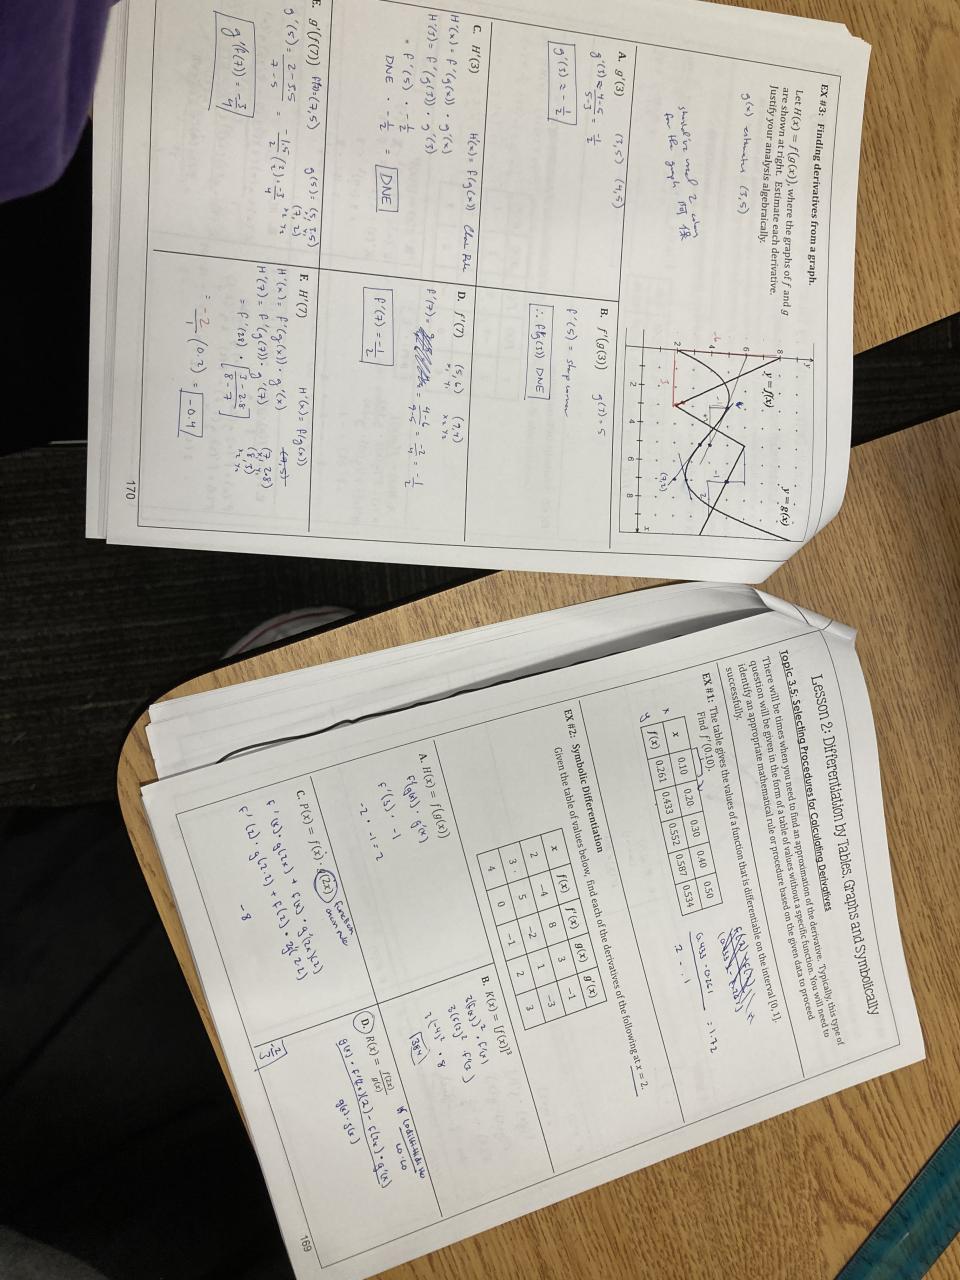 Lesson 2: Differentiation by Tables, Graphs and Symbolically
Topic 3.5: Selecting Procedures for Calculating Derivatives
There will be times when you need to find an approximation of the derivative. Typically, this type of
question will be given in the form of a table of values without a specific function. You will need to
identify an appropriate mathematical rule or procedure based on the given data to proceed
successfully.
EX #1: The table gives the values of a function that is differentiable on the interval [0, 1].
Find f'(0.10).
x
y
x 0.10 0.20 0.30 0.40 0.50
f(x) 0.261 0.433 0.552 0.587 0.534
0.433 - 0.261
2 - .1
= 1.72
EX #2: Symbolic Differentiation
Given the table of values below, find each of the derivatives of the following at x = 2.
x f(x) f'(x) g(x) g'(x)
2 -4 8 3 -1
3 5 -2 1 -3
4 0 -1 2 3
A. H(x) = f(g(x))
f'(g(x)) · g'(x)
f'(3) · -1
-2 · -1 = 2
B. K(x) = [f(x)]³
3(f(x))² · f'(x)
3(f(2))² · f'(2)
3(-4)² · 8
384
C. P(x) = f(x) · g(2x)
function
f'(x) · g(2x) + f(x) · g'(2x)(2)
f'(2) · g(2·2) + f(2) · 2g'(2·2)
-8
D. R(x) = f(2x)/g(x)
g(x) · f'(2x)(2) - f(2x) · g'(x)
g(x) · g(x)
-2/3
169
EX #3: Finding derivatives from a graph.
Let H(x) = f(g(x)), where the graphs of f and g
are shown at right. Estimate each derivative.
Justify your analysis algebraically.
g(x) estimates (3,5)
should've used 2 when
for the graph not
y
8
6
4
2
2 4 6 8
x
y = f(x)
y = g(x)
(7,2)
A. g'(3) (3,5) (4,5)
g'(3) ≈ 4-5/5-3 = -1/2
g'(3) ≈ -1/2
B. f'(g(3)) g(3) = 5
f'(5) = sharp corner
∴ f'(g(3)) DNE
C. H'(3) H(x) = f(g(x)) Chain Rule
H'(x) = f'(g(x)) · g'(x)
H'(3) = f'(g(3)) · g'(3)
= f'(5) · -1/2
DNE · -1/2 = DNE
D. f'(7) (5,6) (9,4)
x₁ y₁ x₂ y₂
f'(7) = 4-6/9-5 = -2/4 = -1/2
f'(7) = -1/2
E. g'(f(7)) f(7) = (7,5) g(5) = (5, 3.5)
x₁ y₁
(7, 2)
x₂ y₂
g'(5) = 2-3.5/7-5 = -1.5/2 (2/2) = -3/4
g'(f(7)) = -3/4
F. H'(7) H'(x) = f'(g(x))
H'(x) = f'(g(x)) · g'(x)
H'(7) = f'(g(7)) · g'(7)
= f'(2.8) · [3-2.8/8-7]
(7, 2.8)
x₁ y₁
(8, 3)
x₂ y₂
= -2/1 (0.2) = -0.4
170